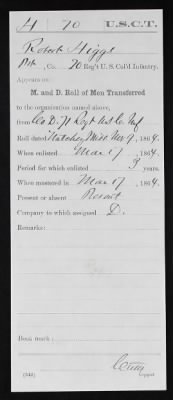 H 70 U.S.C.T.
Robert Higgs
Pvt., Co. 70 Reg't U.S. Col'd Infantry.
Appears on
M. and D. Roll of Men Transferred
to the organization named above,
from Co D. 71 Regt U.S. Co. Inf
Roll dated Natchez Miss Nov 9, 1864.
When enlisted Mar 17, 1864.
Period for which enlisted 3 years.
When mustered in Mar 17, 1864.
Present or absent Present
Company to which assigned D.
Remarks:
Book mark:
(343) Copyist.